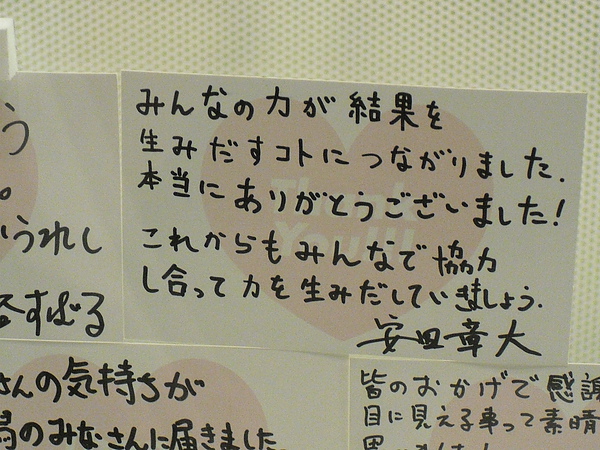 みんなの力が結果を
生みだすコトにつながりました.
本当にありがとうございました!
これからもみんなで協力
し合って力を生みだしていきましょう.
安田章大
う
。
うれし
すばる
さんの気持ちが
のみなさんに届きました
皆のおかげで感謝
目に見える事って素晴
Thank
You!!